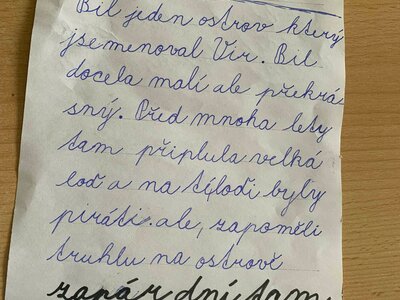 Bil jeden ostrov který
jsemenoval Vir. Bil
docela malí ale překrá
sný. Před mnoha lety
tam připlula velká
loď a na týloďi byly
piráti. ale, zapoměli
truhlu na ostrově
zapár dní tam